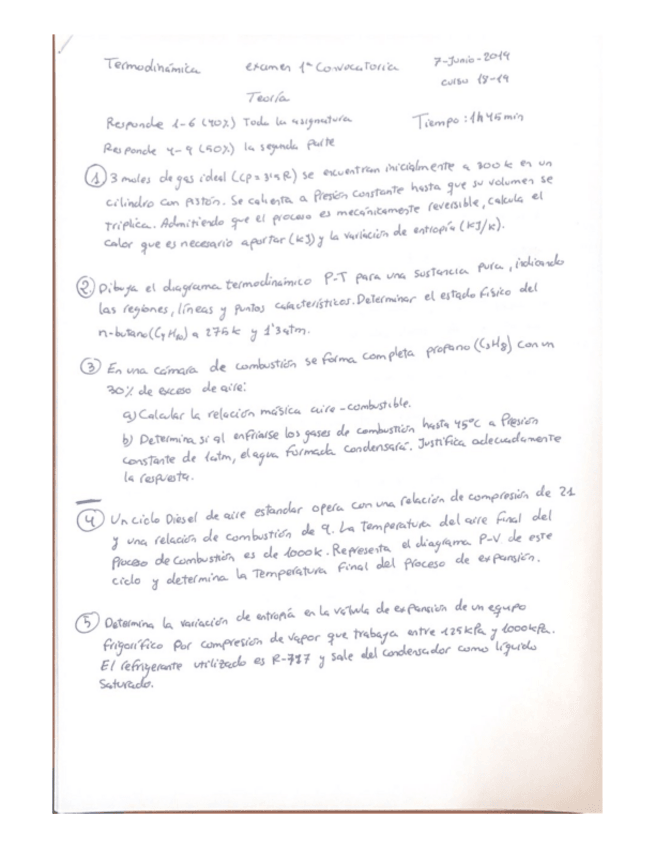 Termodinámica examen 1ª Convocatoria 7-Junio-2019
curso 18-19
Teoría
Responde 1-6 (40%) Toda la asignatura Tiempo: 1h 45 min
Responde 4-9 (50%) la segunda parte
① 3 moles de gas ideal (CP = R) se encuentran inicialmente a 300 K en un
cilindro con pistón. Se calienta a Presión constante hasta que su volumen se
triplica. Admitiendo que el proceso es mecánicamente reversible, calcula el
calor que es necesario aportar (kJ) y la variación de entropía (kJ/K).
② Dibuja el diagrama termodinámico P-T para una sustancia pura, indicando
las regiones, líneas y puntos característicos. Determinar el estado físico del
n-butano (C4H10) a 275 K y 1'3 atm.
③ En una cámara de combustión se forma completa propano (C3H8) con un
30% de exceso de aire:
a) Calcular la relación másica aire-combustible.
b) Determina si al enfriarse los gases de combustión hasta 45°C a Presión
constante de 1 atm, el agua formada condensará. Justifica adecuadamente
la respuesta.
④ Un ciclo Diesel de aire estandar opera con una relación de compresión de 21
y una relación de combustión de La Temperatura del aire final del
proceso de combustión es de 1000 K. Representa el diagrama P-V de este
ciclo y determina la Temperatura final del proceso de expansión.
⑤ Determina la variación de entropía en la válvula de expansión de un equipo
frigorífico por compresión de vapor que trabaja entre 125 kPa y 1000 kPa.
El refrigerante utilizado es R-717 y sale del condensador como líquido
saturado.